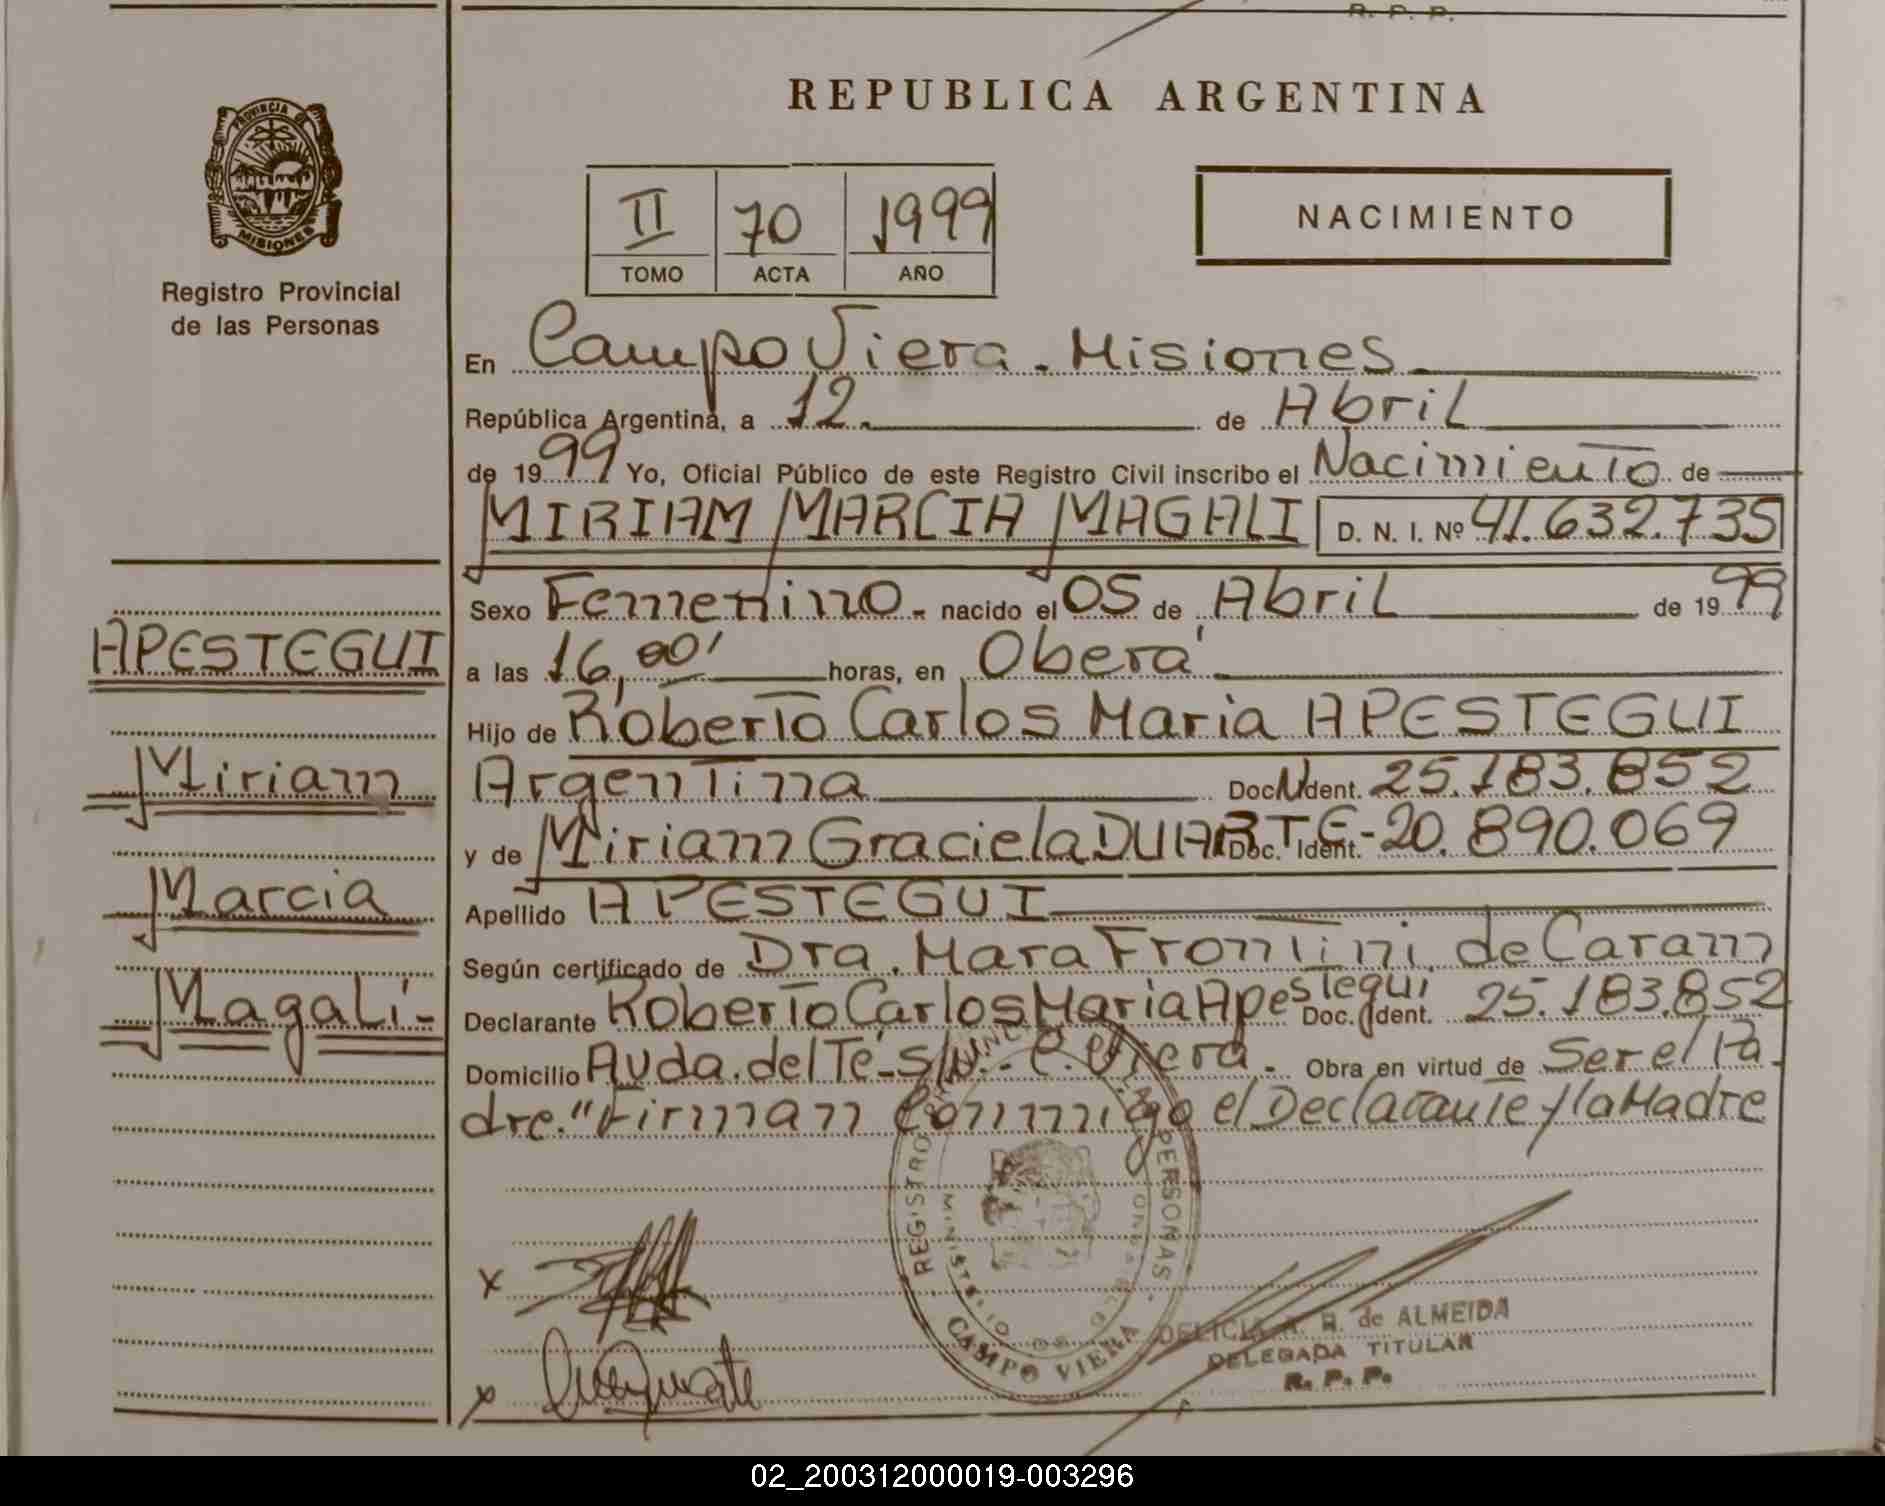 R. P. P.
REPUBLICA ARGENTINA
PROVINCIA DE
MISIONES
Registro Provincial
de las Personas
II 70 1999
TOMO ACTA AÑO
NACIMIENTO
En Campo Viera. Misiones
República Argentina, a 12 de Abril
de 1999 Yo, Oficial Público de este Registro Civil inscribo el Nacimiento de
MIRIAM MARCIA MAGALI D. N. I. Nº 41.632.735
Sexo Femenino nacido el 05 de Abril de 1999
a las 16,00' horas, en Oberá
Hijo de Roberto Carlos Maria APESTEGUI
Argentina Doc.N.Ident. 25.183.852
y de Miriam Graciela DUARTE- Doc. Ident. 20.890.069
Apellido APESTEGUI
Según certificado de Dra. Mara Frontini de Caram
Declarante Roberto Carlos Maria Apestegui Doc. Ident. 25.183.852
Domicilio Avda. del Té-S/N.- C. Viera. Obra en virtud de Ser el Pa-
dre." Firman Conmigo el Declarante y la Madre
APESTEGUI
Miriam
Marcia
Magalí-
REGISTRO PERSONAS
MINISTERIO DE
CAMPO VIERA
x
x
DELICIA R. de ALMEIDA
DELEGADA TITULAR
R. P. P.
02_200312000019-003296